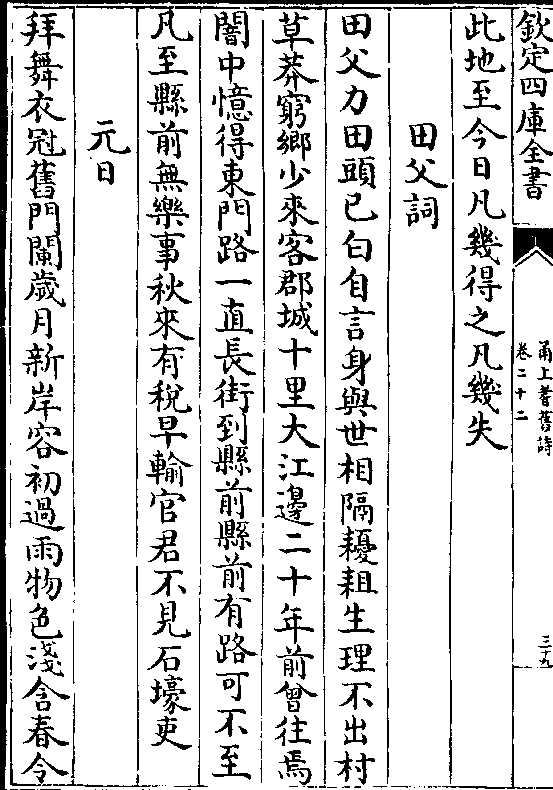 欽定四庫全書
甬上耆舊詩
卷二十二
三十九
此地至今日凡幾得之凡幾失
田父詞
田父力田頭已白自言身與世相隔耰耡生理不出村
草莽窮鄉少來客郡城十里大江邊二十年前曾往焉
闇中憶得東門路一直長街到縣前縣前有路可不至
凡至縣前無樂事秋來有稅早輸官君不見石壕吏
元日
拜舞衣冠舊門闌歲月新岸容初過雨物色淺含春令